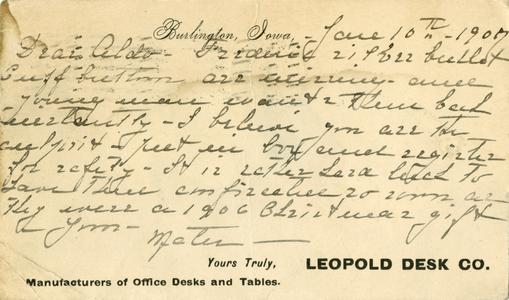 Burlington, Iowa, Jan 10th - 1907
Dear Aldo - Frederic's silver bullet
Cuff buttons are missing - and
young man wants them back
instantly - I believe you are the
culprit - put in box and register
for safety - It is rather hard luck to
have them confiscated so soon as
they were a 1906 Christmas gift
Mater -
Yours Truly, LEOPOLD DESK CO.
Manufacturers of Office Desks and Tables.